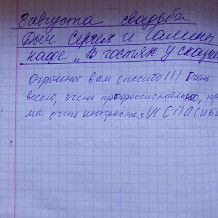 8 августа свадьба
Были Сергея и Галины
наше „В гостях у сказк
Огромное вам спасибо!!! Очень
весело, очень профессионально, пр
ма очень интересная!!! СПАСИБ